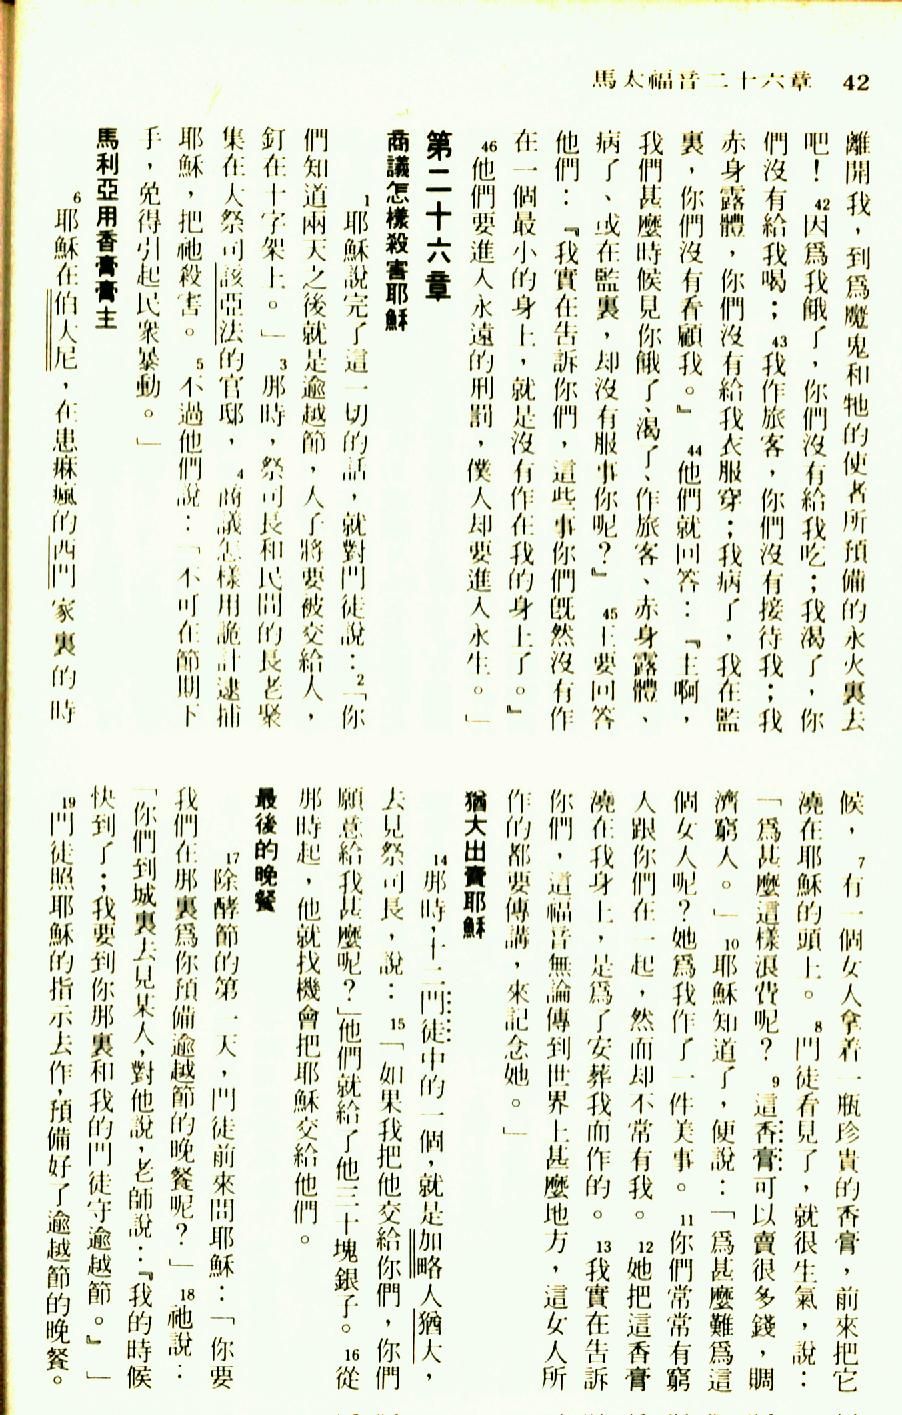 馬太福音二十六章 42
離開我，到爲魔鬼和牠的使者所預備的永火裏去
吧！ 42因爲我餓了，你們沒有給我吃；我渴了，你
們沒有給我喝； 43我作旅客，你們沒有接待我；我
赤身露體，你們沒有給我衣服穿；我病了，我在監
裏，你們沒有看顧我。』 44他們就回答：『主啊，
我們甚麼時候見你餓了、渴了、作旅客、赤身露體、
病了、或在監裏，却沒有服事你呢？』 45王要回答
他們：『我實在告訴你們，這些事你們旣然沒有作
在一個最小的身上，就是沒有作在我的身上了。』
46他們要進入永遠的刑罰，僕人却要進入永生。」
第二十六章
商議怎樣殺害耶穌
1耶穌說完了這一切的話，就對門徒說：2「你
們知道兩天之後就是逾越節，人子將要被交給人，
釘在十字架上。」 3那時，祭司長和民間的長老聚
集在大祭司該亞法的官邸， 4商議怎樣用詭計逮捕
耶穌，把祂殺害。 5不過他們說：「不可在節期下
手，免得引起民衆暴動。」
馬利亞用香膏膏主
6耶穌在伯大尼，在患痲瘋的西門家裏的時
候， 7有一個女人拿着一瓶珍貴的香膏，前來把它
澆在耶穌的頭上。 8門徒看見了，就很生氣，說：
「爲甚麼這樣浪費呢？ 9這香膏可以賣很多錢，賙
濟窮人。」 10耶穌知道了，便說：「爲甚麼難爲這
個女人呢？她爲我作了一件美事。 11你們常常有窮
人跟你們在一起，然而却不常有我。 12她把這香膏
澆在我身上，是爲了安葬我而作的。 13我實在告訴
你們，這福音無論傳到世界上甚麼地方，這女人所
作的都要傳講，來記念她。」
猶大出賣耶穌
14那時，十二門徒中的一個，就是加略人猶大，
去見祭司長，說： 15「如果我把他交給你們，你們
願意給我甚麼呢？」他們就給了他三十塊銀子。 16從
那時起，他就找機會把耶穌交給他們。
最後的晚餐
17除酵節的第一天，門徒前來問耶穌：「你要
我們在那裏爲你預備逾越節的晚餐呢？」 18祂說：
「你們到城裏去見某人，對他說，老師說：『我的時候
快到了；我要到你那裏和我的門徒守逾越節。』」
19門徒照耶穌的指示去作，預備好了逾越節的晚餐。